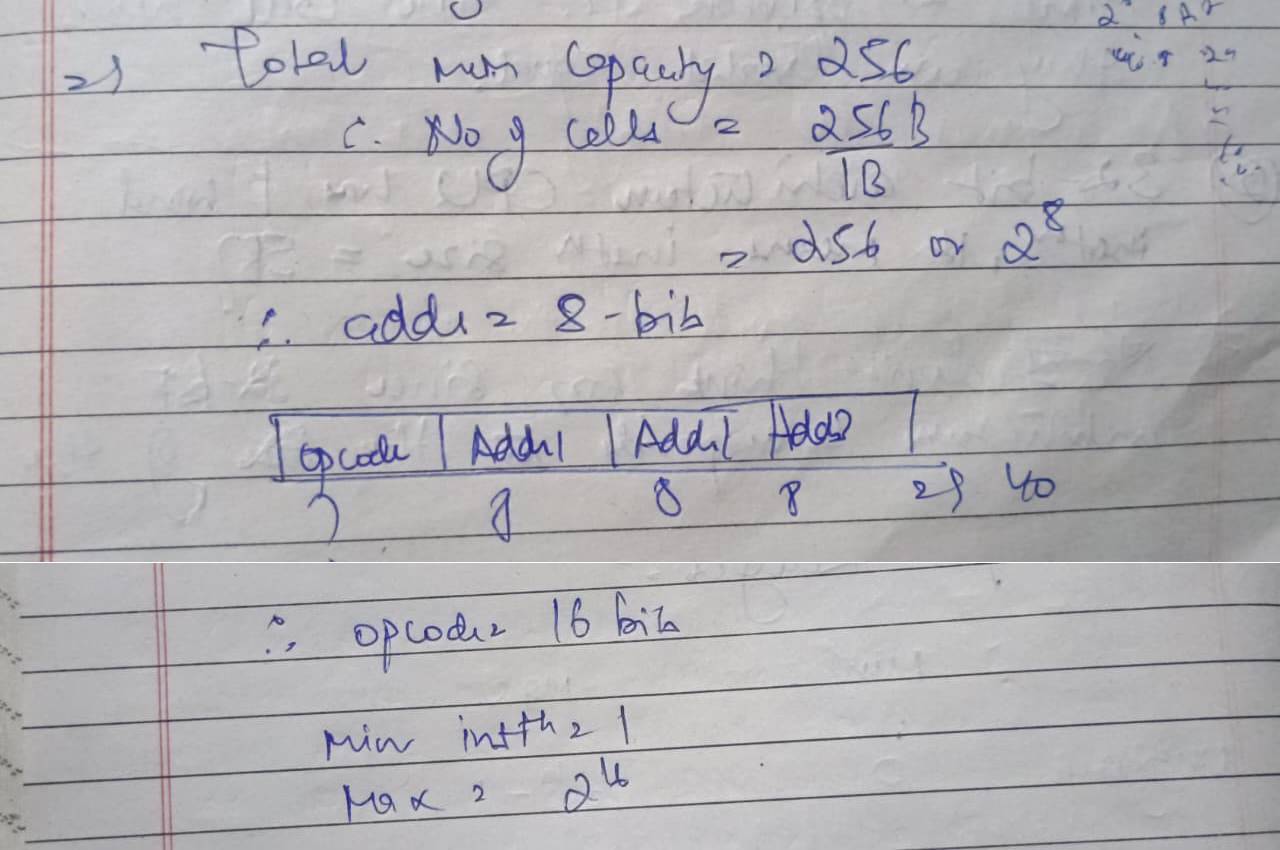 2) Total mem Capacity = 256
∴ No of cells = 256 B / 1B
= 256 or 2^8
∴ addr = 8-bits
Opcode | Addr1 | Addr2 | Addr3
? 8 8 8 = 40
∴ opcode = 16 bits
Min instth = 1
Max = 2^16